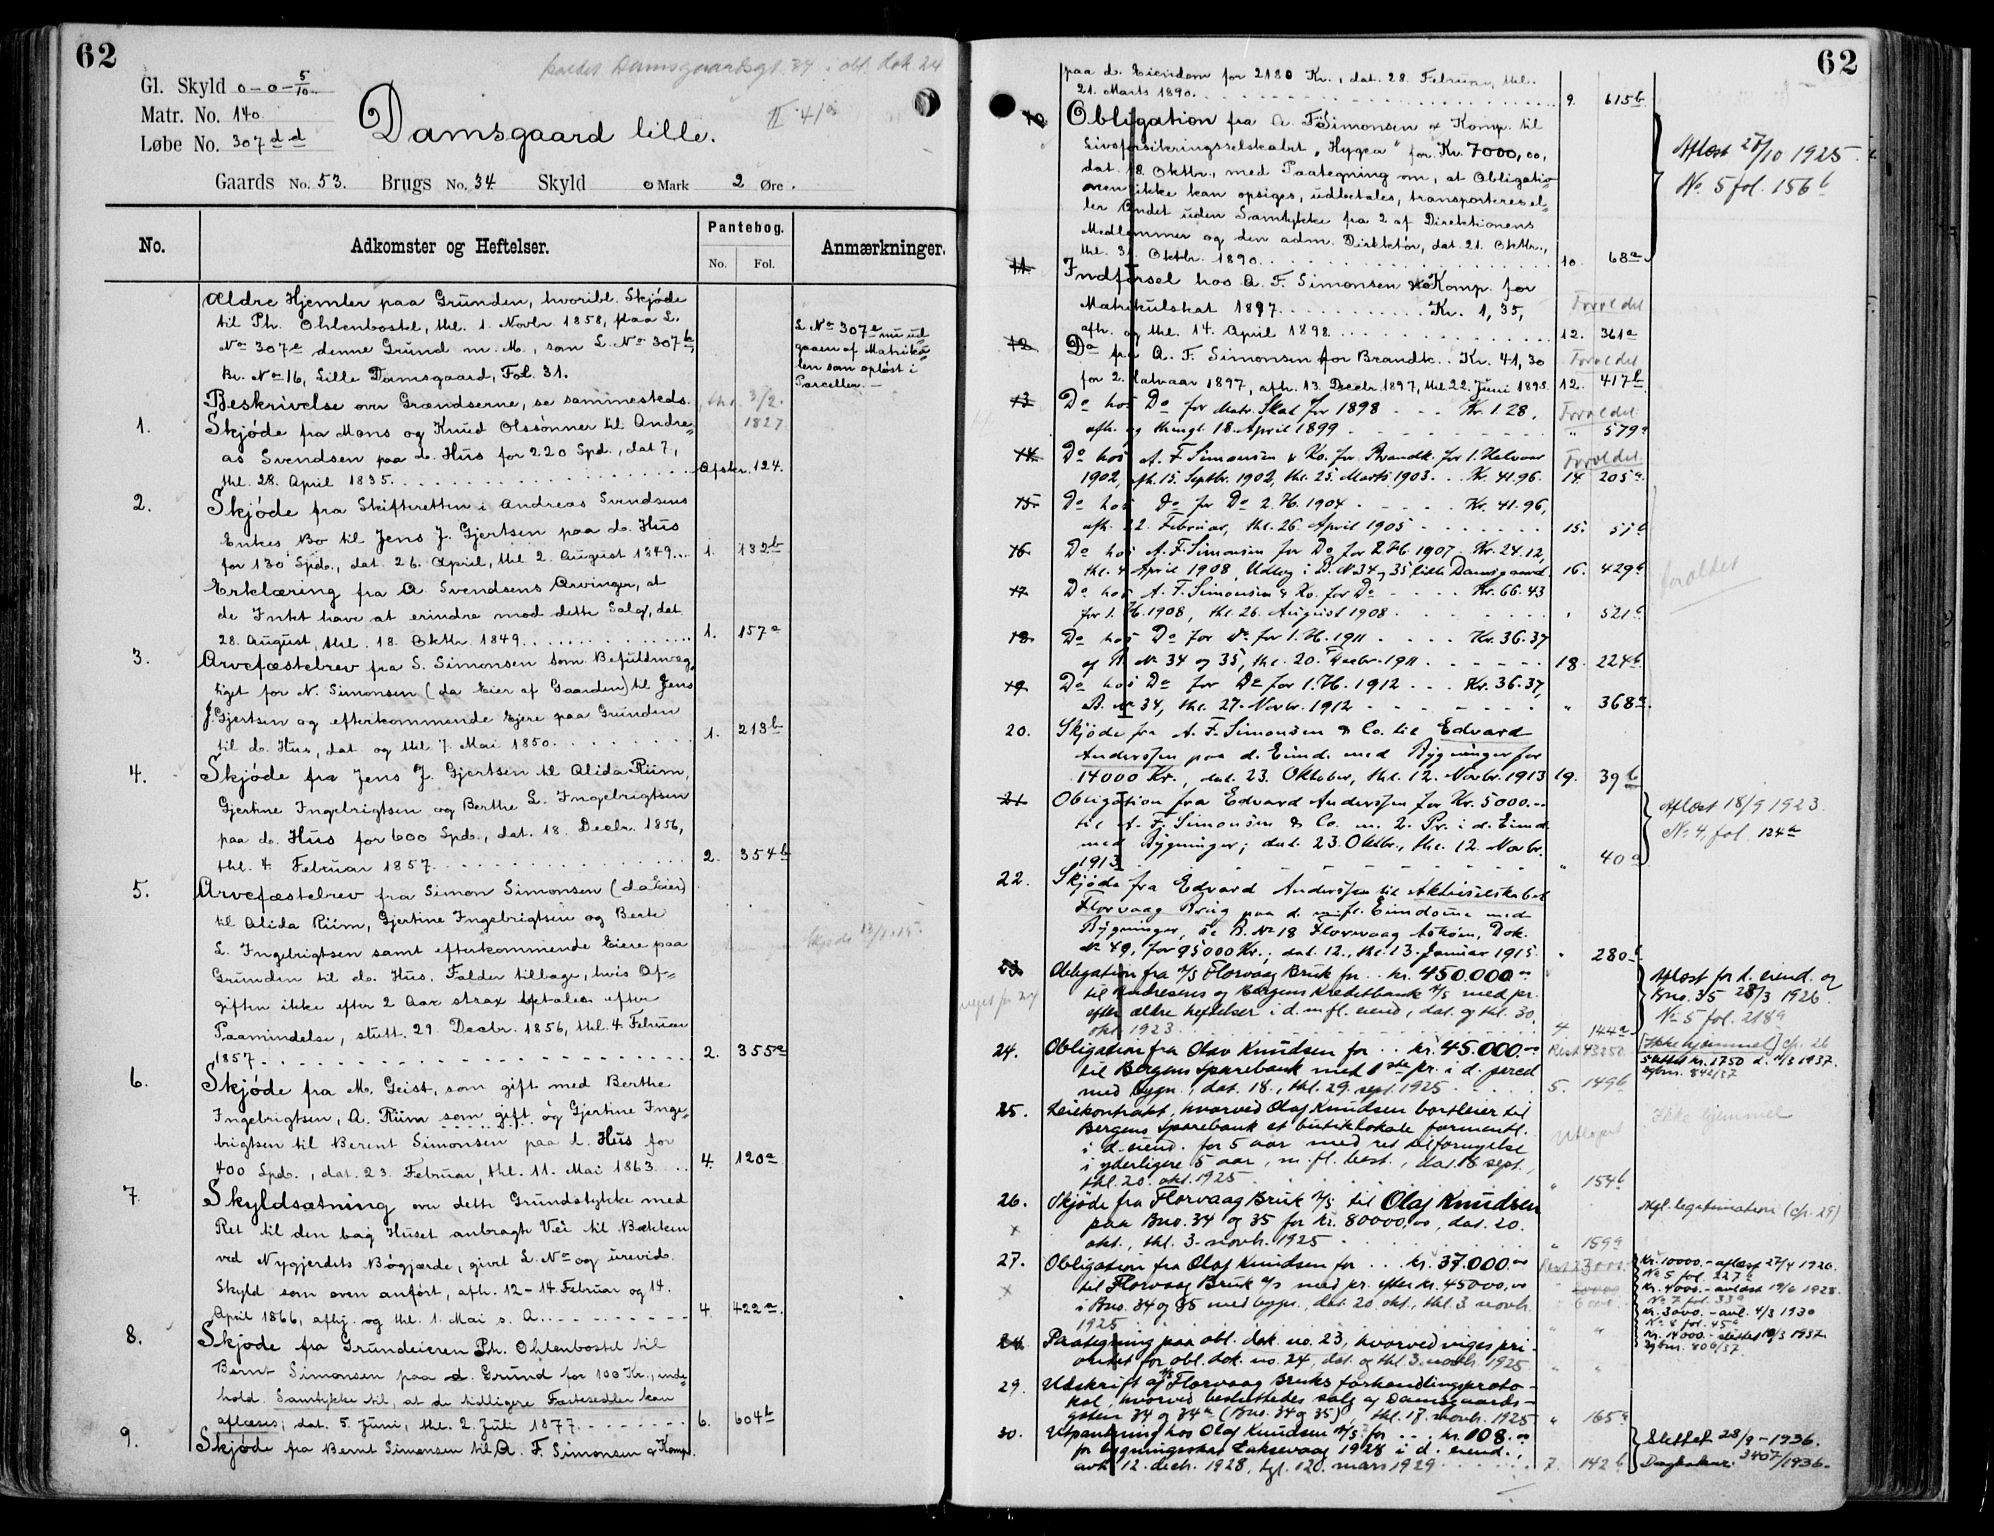 62
kaldes Damsgaardsgt. 34 i obl. dok. 24
Gl. Skyld 0-0-5/10
Matr. No. 140
Løbe No. 307 d d
Damsgaard lille.
II 41
Gaards No. 53. Brugs No. 34 Skyld 0 Mark 2 Øre.
No.
Adkomster og Heftelser.
Pantebog.
No. Fol.
Anmærkninger.
Ældre Hjemler paa Grunden, hvoribl. Skjøde
til Ph. Ohlenbostel, thl. 1. Novbr 1858, paa L.
No 307e denne Grund m. M., som L. No 307b,
Br. No 16, Lille Damsgaard, Fol. 31.
L No 307e nu ud-
gaaen af Matriku-
len som opløst i
Parceller. —
Beskrivelse over Grændserne, se sammesteds. thl. 3/2. 1827
1. Skjøde fra Mons og Knud Olssønner til Andre-
as Svendsen paa d. Hus for 220 Spd., dat 7,
thl. 28. April 1835. Afskr. 124.
2. Skjøde fra Skifteretten i Andreas Svendsens
Enkes Bo til Jens J. Gjertsen paa d. Hus
for 130 Spd., dat. 26. April, thl 2. August 1849... 1. 132b
Erklæring fra A Svendsens Arvinger, at
de Intet have at erindre mod dette Salg, dat.
28. August, thl. 18. Oktbr. 1849. 1. 157a
3. Arvefæstebrev fra S. Simonsen som Befuldmæg-
tiget for N. Simonsen (da Eier af Gaarden) til Jens
J. Gjertsen og efterkommende Ejere paa Grunden
til d. Hus, dat. og thl 7. Mai 1850. 1. 213b
4. Skjøde fra Jens J. Gjertsen til Alida Riim,
Gjertine Ingebrigtsen og Berthe L. Ingebrigtsen
paa d. Hus for 600 Spd., dat. 18. Decbr. 1856,
thl. 4. Februar 1857. 2. 354b
5. Arvefæstebrev fra Simon Simonsen (da Eier)
til Alida Riim, Gjertine Ingebrigtsen og Berte
L. Ingebrigtsen samt efterkommende Eiere paa
Grunden til d. Hus. Falder tilbage, hvis Af-
giften ikke efter 2 Aar strax betales efter
Paamindelse, stutt. 29. Decbr. 1856, thl. 4. Februar
1857. 2. 355a
6. Skjøde fra M. Geist, som gift med Berthe
Ingebrigtsen, A. Riim som gift og Gjertine Inge-
brigtsen til Berent Simonsen paa d. Hus for
400 Spd., dat. 23. Februar, thl. 11. Mai 1863. 4. 120a
7. Skyldsætning over dette Grundstykke med
Ret til den bag Huset anbragte Vei til Bækken
ved Nygjerdets Bøgjærde, givet L. No og urevid.
Skyld som oven anført, afh. 12-14 Februar og 14.
April 1866, afhj. og thl. 1. Mai s. A. 4 422a.
8. Skjøde fra Grundeieren Ph. Ohlenbostel til
Bernt Simonsen paa d. Grund for 100 Kr., inde-
hold. Samtykke til, at de tidligere Fæstesedler kan
aflæses; dat. 5. Juni, thl. 2. Juli 1877. 6. 604b
9. Skjøde fra Bernt Simonsen til A. F. Simonsen & Komp.
62
paa d. Eiendom for 2180 Kr., dat. 28. Februar, thl.
21. Marts 1890. 9. 615b
10 Obligation fra A. F. Simonsen & Komp. til
Livsforsikringsselskabet "Hygea" for Kr. 7000,00,
dat. 18. Oktbr., med Paategning om, at Obligatio-
onen ikke kan opsiges, udbetales, transporteres el-
ler Andet uden Samtykke fra 2 af Direktionens
Medlemmer og den adm. Direktør, dat. 21. Oktbr.,
thl. 31. Oktbr. 1890. 10. 68a
Aflæst 27/10 1925.
No 5 fol. 156b
11. Indførsel hos A. F. Simonsen & Komp. for
Matrikulskat 1897. Kr. 1,35,
afh. og thl. 14. April 1898. 12. 361a
Forældet
12. Do fra A. F. Simonsen for Brandk. Kr. 41,30
for 2. Halvaar 1897, afh. 13. Decbr. 1897, thl. 22. Juni 1898. 12. 417b
Forældet
13. Do hos Do for Matr. Skat for 1898 Kr. 1.28,
afh. og thingl. 18. April 1899 " 579a
Forældet
14. Do hos A. F. Simonsen & Ko. for Brandk. for 1. Halvaar
1902, afh. 15. Septbr. 1902, thl. 25. Marts 1903. Kr. 41.96. 14. 205a
Forældet.
15. Do hos Do for Do 2. H. 1904 Kr. 41.96,
afh. 22. Februar, thl. 26. April 1905 15. 51b
16. Do hos A. F. Simonsen for Do for 2 H. 1907. Kr. 24.12,
thl. 4 April 1908, Udlæg i B. No 34 og 35 lille Damsgaard. 16. 429b
forældet
17. Do hos A. F. Simonsen & Ko. for Do Kr. 66.43
for 1. H. 1908, thl. 26. August 1908 " 521a
18. Do hos Do for Do for 1. H. 1911 Kr. 36.37
af B. No 34 og 35, thl. 20. Decbr. 1911 18. 224b
19. Do hos Do for Do for 1. H. 1912 Kr. 36.37,
B. No 34, thl. 27. Novbr. 1912 " 368a
20. Skjøde fra A. F. Simonsen & Co. til Edvard
Anderssen paa d. Eiend. med Bygninger for
14000 Kr., dat. 23. Oktober, thl. 12. Novbr. 1913 19. 39b
21. Obligation fra Edvard Anderssen for Kr. 5000.—
til A. F. Simonsen & Co. m. 2. Pr. i d. Eiend.
med Bygninger; dat. 23. Oktbr., thl. 12. Novbr.
1913 " 40a
Aflæst 18/9 1923.
No 4, fol. 124a
22. Skjøde fra Edvard Anderssen til Aktieselskabet
Florvaag Brug paa d. m. fl. Eiendome med
Bygninger, se B. No 18 Florvaag Askøen, Dok.
No 49, for 95000 Kr.; dat. 12., thl. 13. Januar 1915. " 280b
23. Obligation fra A/S Florvaag Bruk for kr. 450.000.—
til Andresens og Bergens Kreditbank A/S med pr.
efter ældre heftelser i d. m. fl. eiend., dat. og thl. 30.
okt. 1923. 4 144a
viget for 24
Aflæst for d. eiend. og
Bno. 35 28/3 1926.
No 5 fol. 218a
24. Obligation fra Olav Knudsen for kr. 45.000.—
til Bergens Sparebank med 1ste pr. i d. parcel
med bygn., dat. 18., thl. 29. sept. 1925 5. 149b
Rest 43250
[Ikke hjemmel] cfr. 26
Slettet kr. 1750 d. 11/3 1937.
Dgbnr. 842/37
25. Leiekontrakt, hvorved Olaf Knudsen bortleier til
Bergens Sparebank et butiklokale forment.
i d. eiend. for 5 aar med ret til fornyelse
i yderligere 5 aar, m. fl. best., dat. 18 sept.,
thl. 20. okt. 1925 " 154b
Utløpet
Ikke hjemmel
26. Skjøde fra Florvaag Bruk A/S til Olaf Knudsen
paa Bno. 34 og 35 for kr. 80000,00, dat. 20.
okt., thl. 3. novbr. 1925 " 159a
Mgl. legitimation (cfr. 29)
27. Obligation fra Olaf Knudsen for kr. 37.000.—
til Florvaag Bruk A/S med pr. efter kr. 45000,00
i Bno. 34 og 35 med bygn., dat. 20 okt., thl. 3 novbr.
1925 " "
Rest 23000
Kr. 10000.— aflæst 27/4 1926.
No 5 fol. 227a
Kr. 4000.— avlæst 19/6 1928.
No 7 fol. 33a
Kr. 3000.— avl. 4/3 1930
No 8 fol. 45a
Kr. 14000.— slettet 10/3 1937.
Dgbnr. 806/37.
28. Paategning paa obl. dok. no. 23, hvorved viges pri-
oritet for obl. dok. no. 24, dat. og thl 3. novbr. 1925 " "
29. Utskrift af A/S Florvaag Bruks forhandlingsproto-
kol, hvorved besluttedes salg af Damsgaards-
gaten 34 og 34a (Bno. 34 og 35), thl. 17. novbr. 1925 " 165a
30. Utpantning hos Olaf Knudsen A/S for kr. 108.—
for bygningsskat Laksevaag 1928 i d. eiend.,
avh. 12. decb. 1928, tgl. 120. mars 1929 7. 142b
Slettet 28/9-1936.
Dagboknr. 3407/1936.